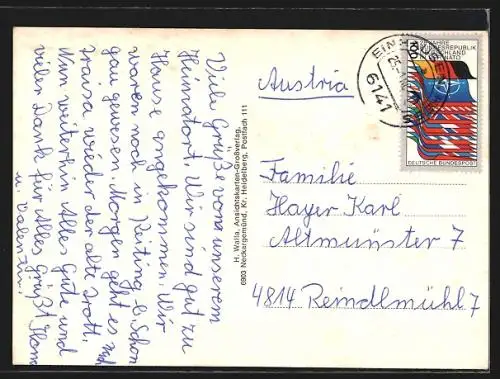 Viele Grüße vom unserem
Heimatort. Wir sind gut zu
Hause angekommen. Wir
waren noch in Reiting b. Schon
gau gewesen. Morgen geht es
wieder der alte Trott.
Nun weiterhin Alles Gute und
vielen Dank für Alles Grüßt
u. Valentin.
H. Walla, Ansichtskarten-Großverlag,
6903 Neckargemünd, Kr. Heidelberg, Postfach 111
Austria
Familie
Hayer Karl
Altmünster 7
4814 Reindlmühl 7
6141
BUNDESREPUBLIK
NATO
DEUTSCHE BUNDESPOST